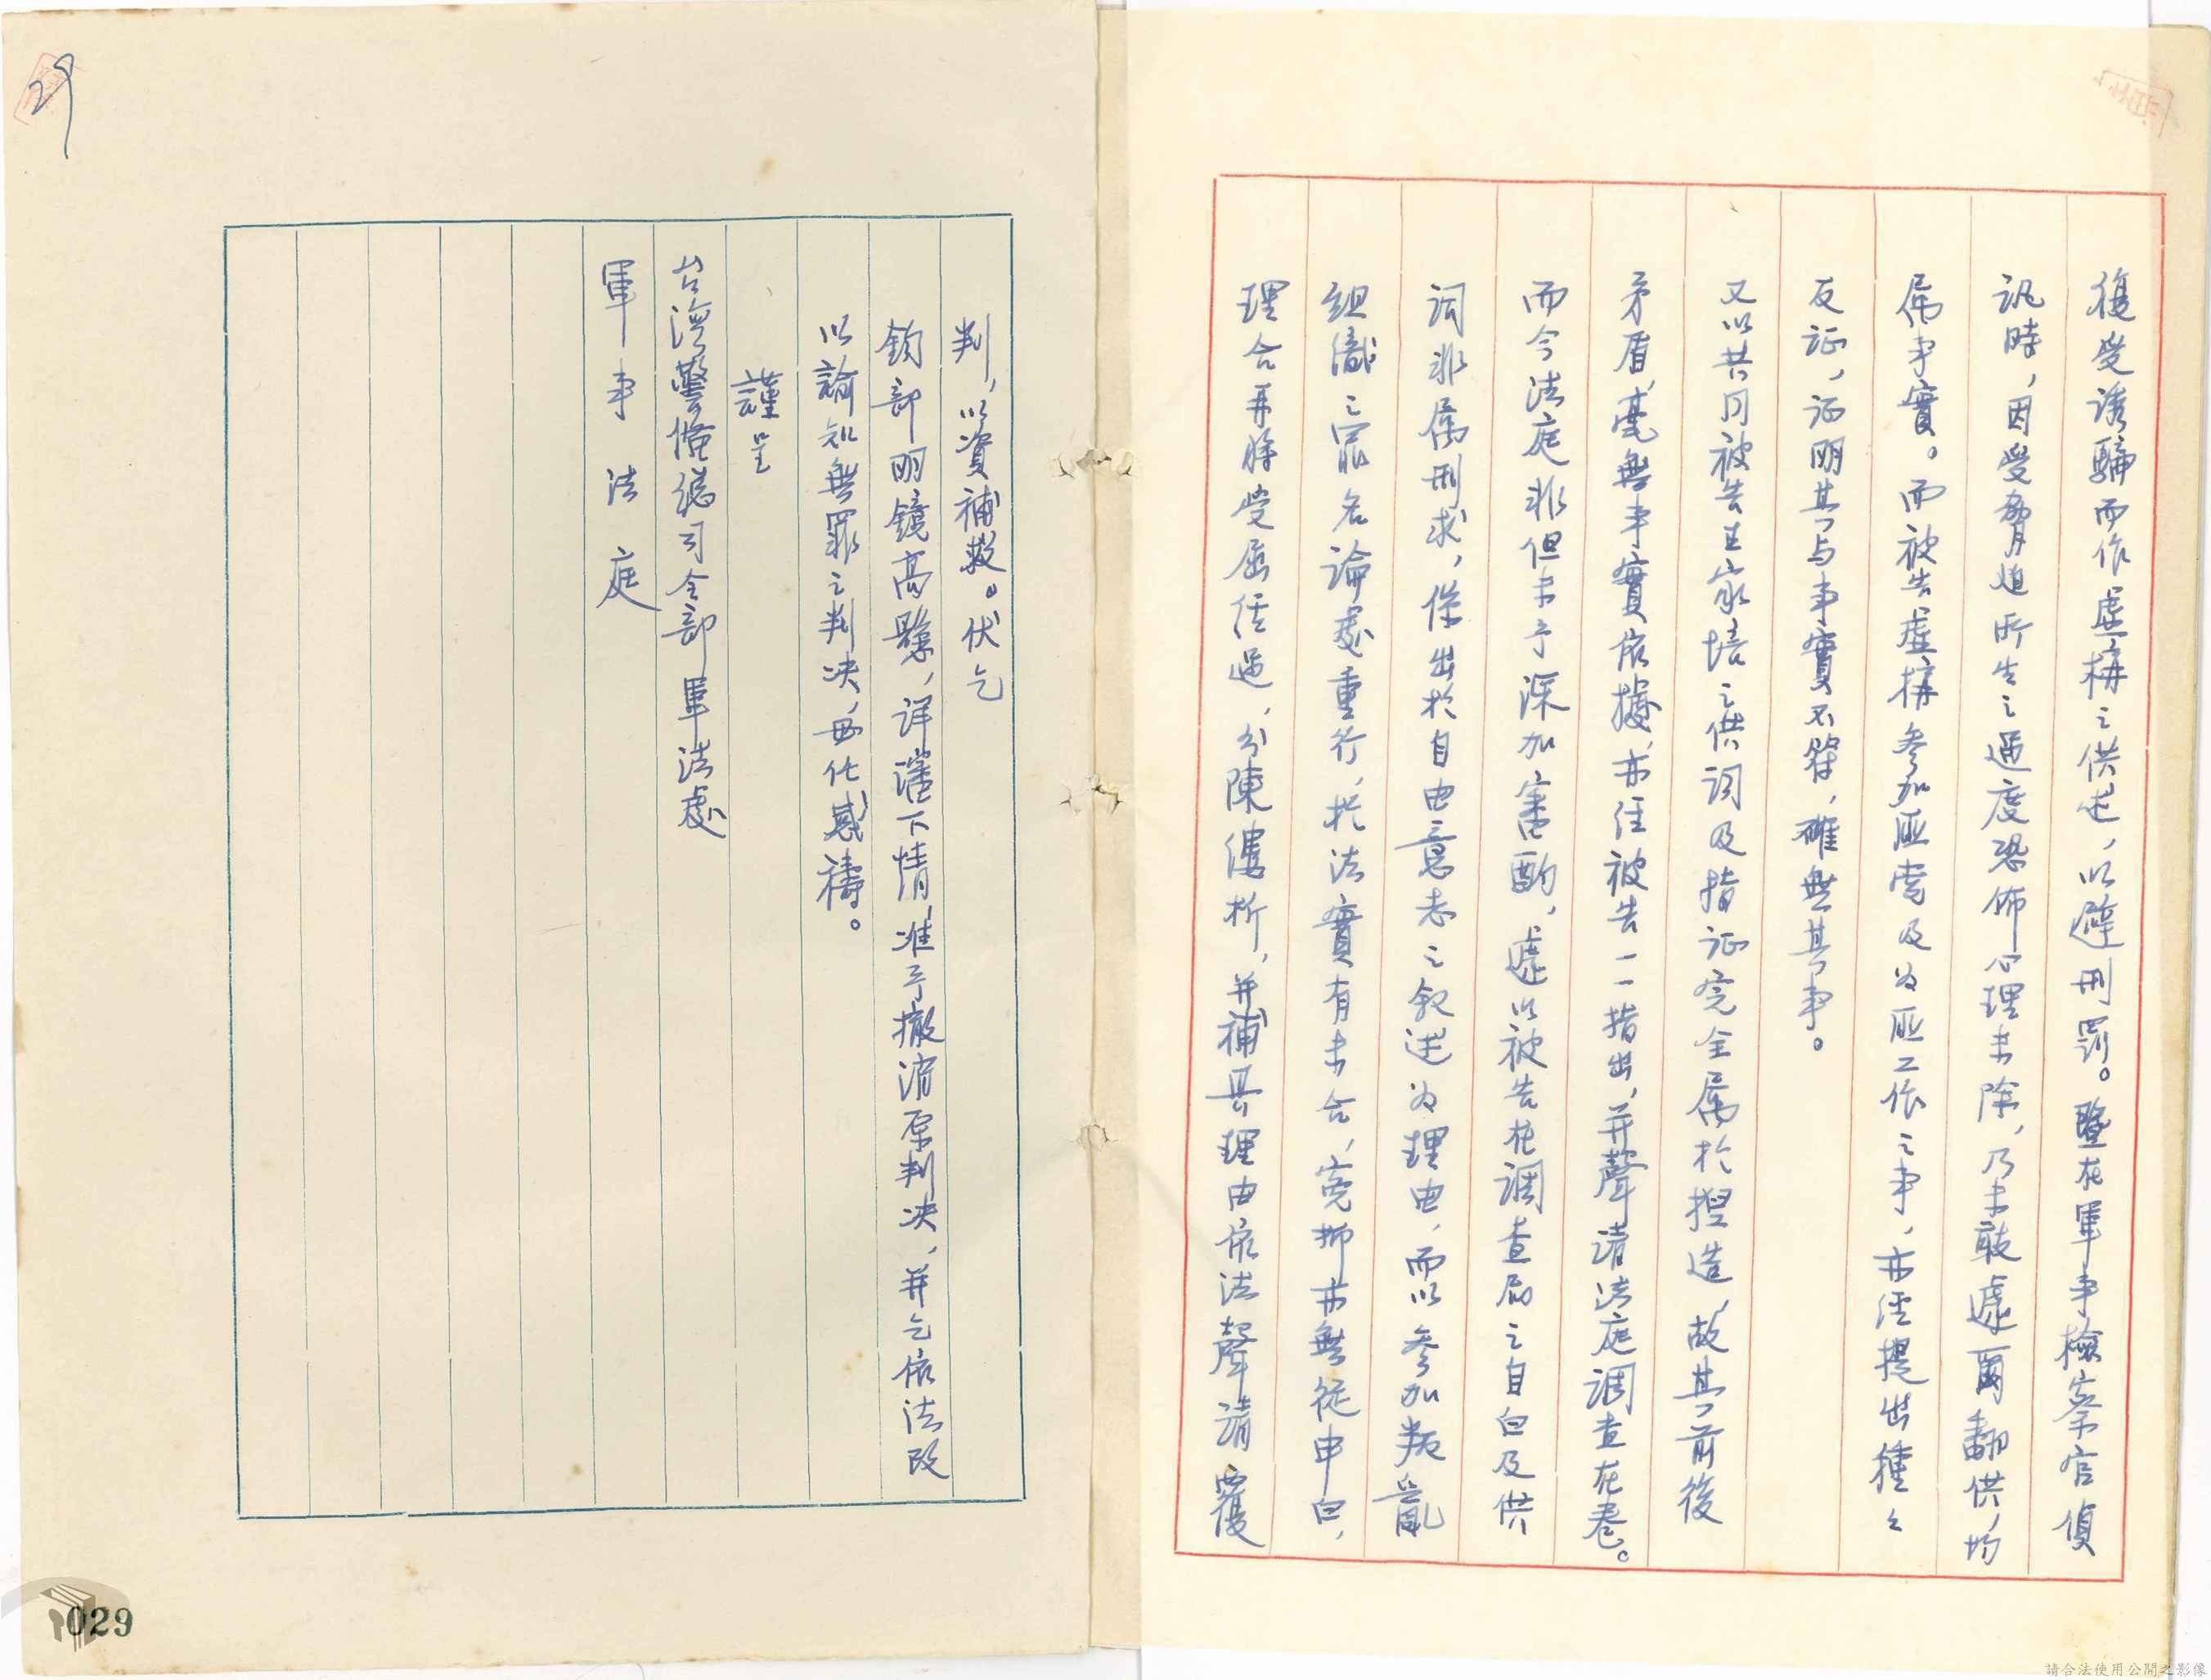 復受誘騙而作虛構之供述，以避刑罰。暨在軍事檢察官偵
訊時，因受脅迫所生之過度恐佈心理未除，乃未敢遽爾翻供，均
屬事實。而被告虛構參加匪黨及为匪工作之事，亦經提出種々
反证，证明其与事實不符，確無其事。
又以共同被告王家培之供词及指证完全属於捏造，故其前後
矛盾，毫無事實依據，亦经被告一一指出，并聲请法庭调查在卷。
而今法庭非但未予深加審酌，遽以被告在調查局之自白及供
词非属刑求，係出於自由意志之叙述为理由，而以參加叛亂
組織之罪名論處重行，於法實有未合，寃抑亦無從申白，
理合再將受屈经過，分陳縷析，并補具理由依法聲请覆
判，以資補救。伏乞
鈞部明鏡高懸，详察下情，准予撤消原判决，并乞依法改
以諭知無罪之判决，毋任感禱。
謹呈
台湾警備總司令部軍法處
軍事法庭
29
029
請合法使用公開之影像